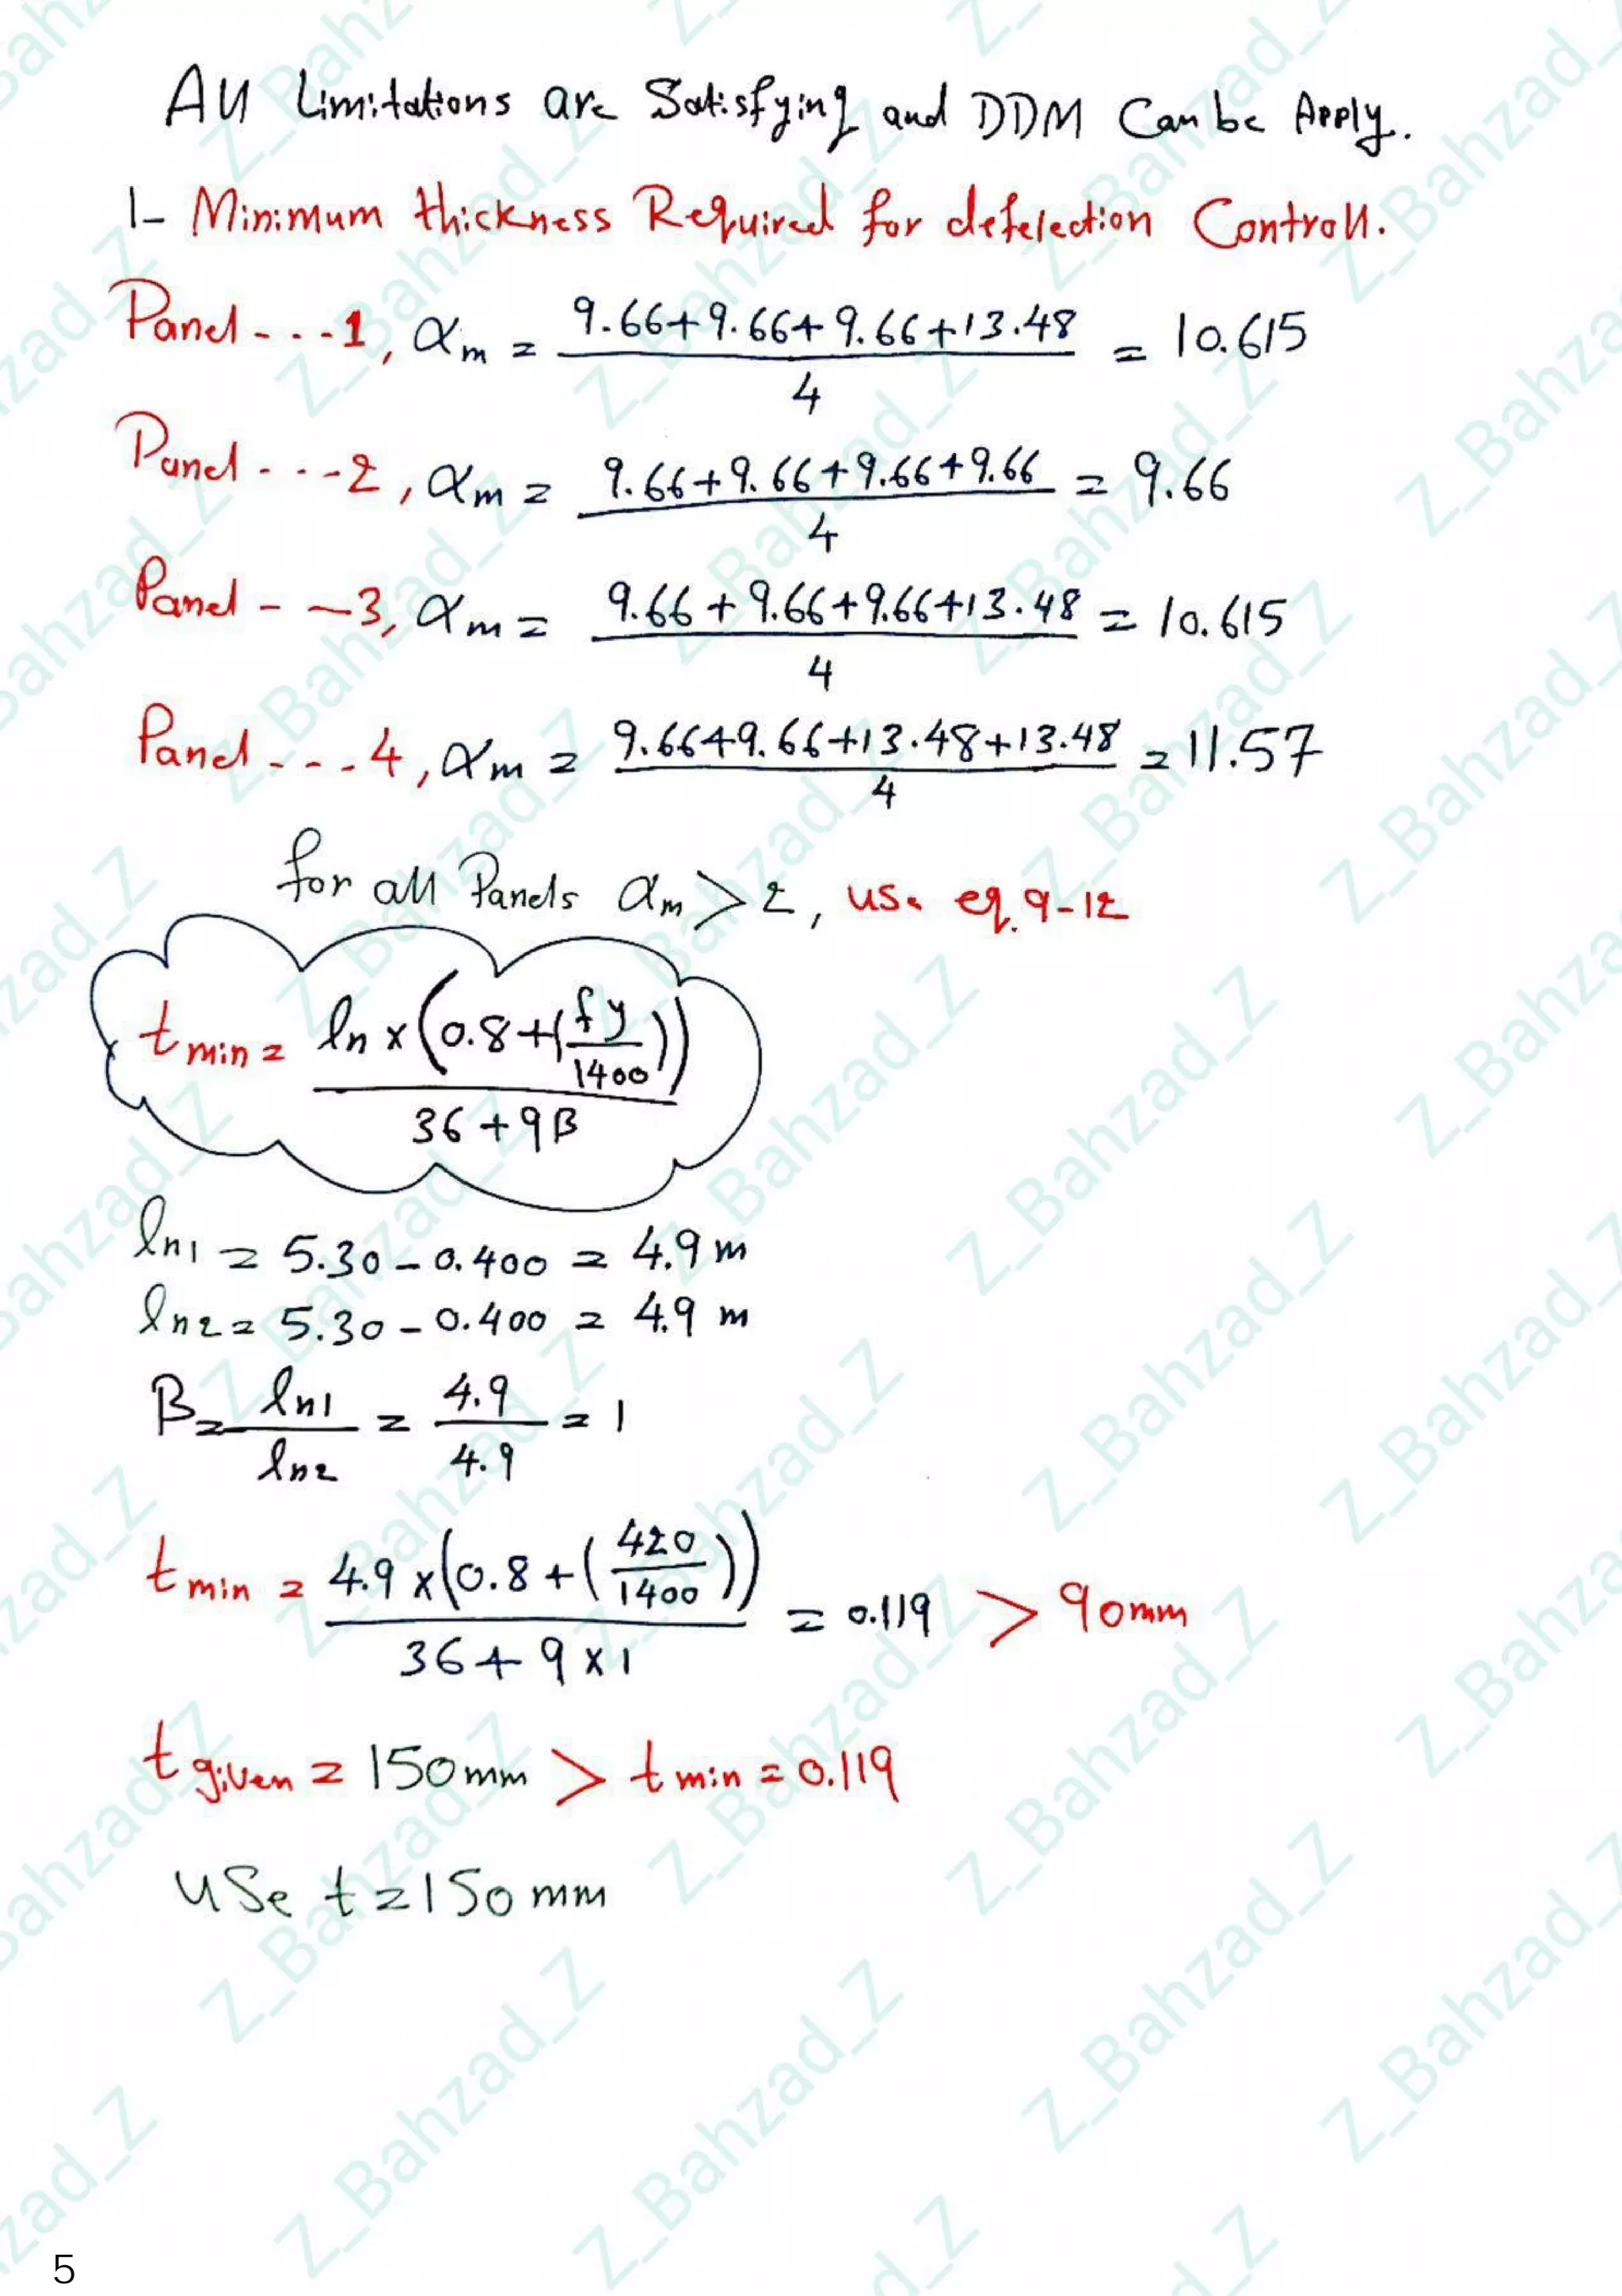 All Limitations are Satisfying and DDM Can be Apply.
1- Minimum thickness Required for defelection Controll.
Panel - - -1, αm = (9.66+9.66+9.66+13.48)/4 = 10.615
Panel - - -2, αm = (9.66+9.66+9.66+9.66)/4 = 9.66
Panel - - 3, αm = (9.66+9.66+9.66+13.48)/4 = 10.615
Panel - - - 4, αm = (9.66+9.66+13.48+13.48)/4 = 11.57
for all Panels αm > 2, use eq. 9-12
tmin = ln x (0.8+(fy/1400)) / 36+9β
ln1 = 5.30 - 0.400 = 4.9 m
ln2 = 5.30 - 0.400 = 4.9 m
β = ln1/ln2 = 4.9/4.9 = 1
tmin = 4.9 x (0.8+(420/1400)) / 36+9x1 = 0.119 > 90mm
t given = 150mm > tmin = 0.119
USe t = 150 mm
5
Z_Bahzad_Z